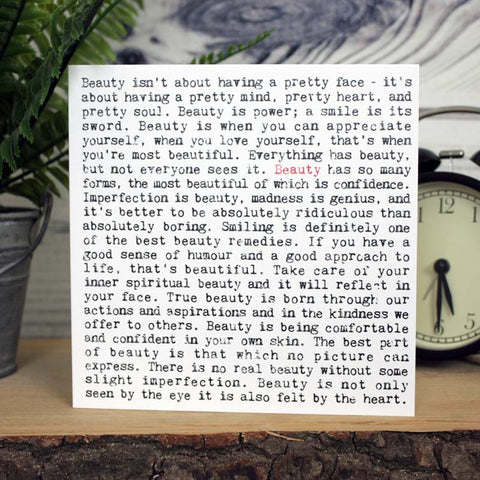 Beauty isn't about having a pretty face - it's
about having a pretty mind, pretty heart, and
pretty soul. Beauty is power; a smile is its
sword. Beauty is when you can appreciate
yourself, when you love yourself, that's when
you're most beautiful. Everything has beauty,
but not everyone sees it. Beauty has so many
forms, the most beautiful of which is confidence.
Imperfection is beauty, madness is genius, and
it's better to be absolutely ridiculous than
absolutely boring. Smiling is definitely one
of the best beauty remedies. If you have a
good sense of humour and a good approach to
life, that's beautiful. Take care of your
inner spiritual beauty and it will reflect in
your face. True beauty is born through our
actions and aspirations and in the kindness we
offer to others. Beauty is being comfortable
and confident in your own skin. The best part
of beauty is that which no picture can
express. There is no real beauty without some
slight imperfection. Beauty is not only
seen by the eye it is also felt by the heart.
12
1
11
10
9
8
7
6
5